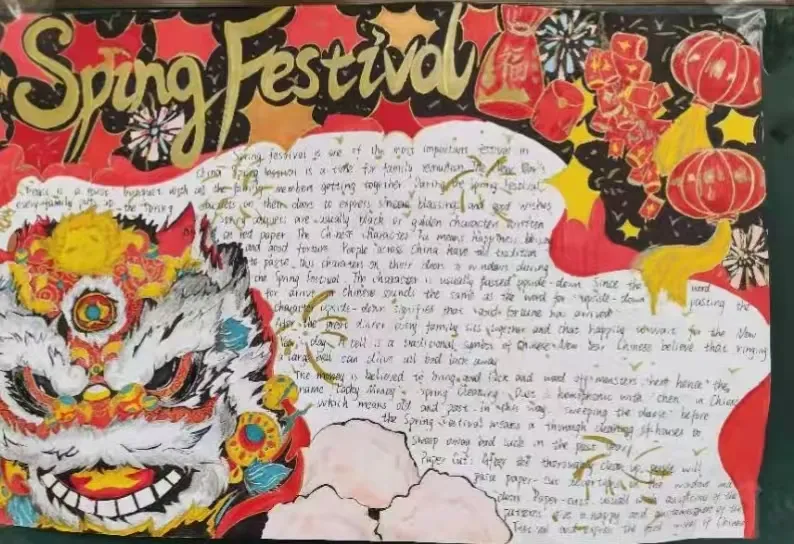 Sping Festival
Spring festival is one of the most important festival in
China Spring festival is a time for family reunion. The New Year's
is a must banquet with all the family members getting together During the Spring Festival
every family puts up the Spring couplets on their doors to express sincere blessings and good wishes
Spring couplets are usually black or golden characters written
on red paper The Chinese character "Fu" means happiness
and good fortune People across China have the tradition
to paste this character on their doors or windows during
the Spring Festival The character is usually pasted upside-down Since the word
for arrive in Chinese sounds the same as the word for upside-down pasting the
character upside-down signifies that good fortune has arrived
After the dinner every family sits together and chat happily for the New
day A bell is a traditional symbol of Chinese New Year Chinese believe that ringing
a large bell can drive all bad luck away
The money is believed to bring good luck and ward off monsters hence the
name "Lucky Money" Spring Cleaning Dust is homophonic with "chen" in Chinese
which means old and past in this way sweeping the dust before
the Spring Festival means a thorough cleaning of houses to
sweep away bad luck in the past year
Paper Cut: After the thorough clean up people will
paste paper-cut on the windows and
doors Paper-cuts usually with auspicious
a happy and of the
festival and express the good wishes of Chinese